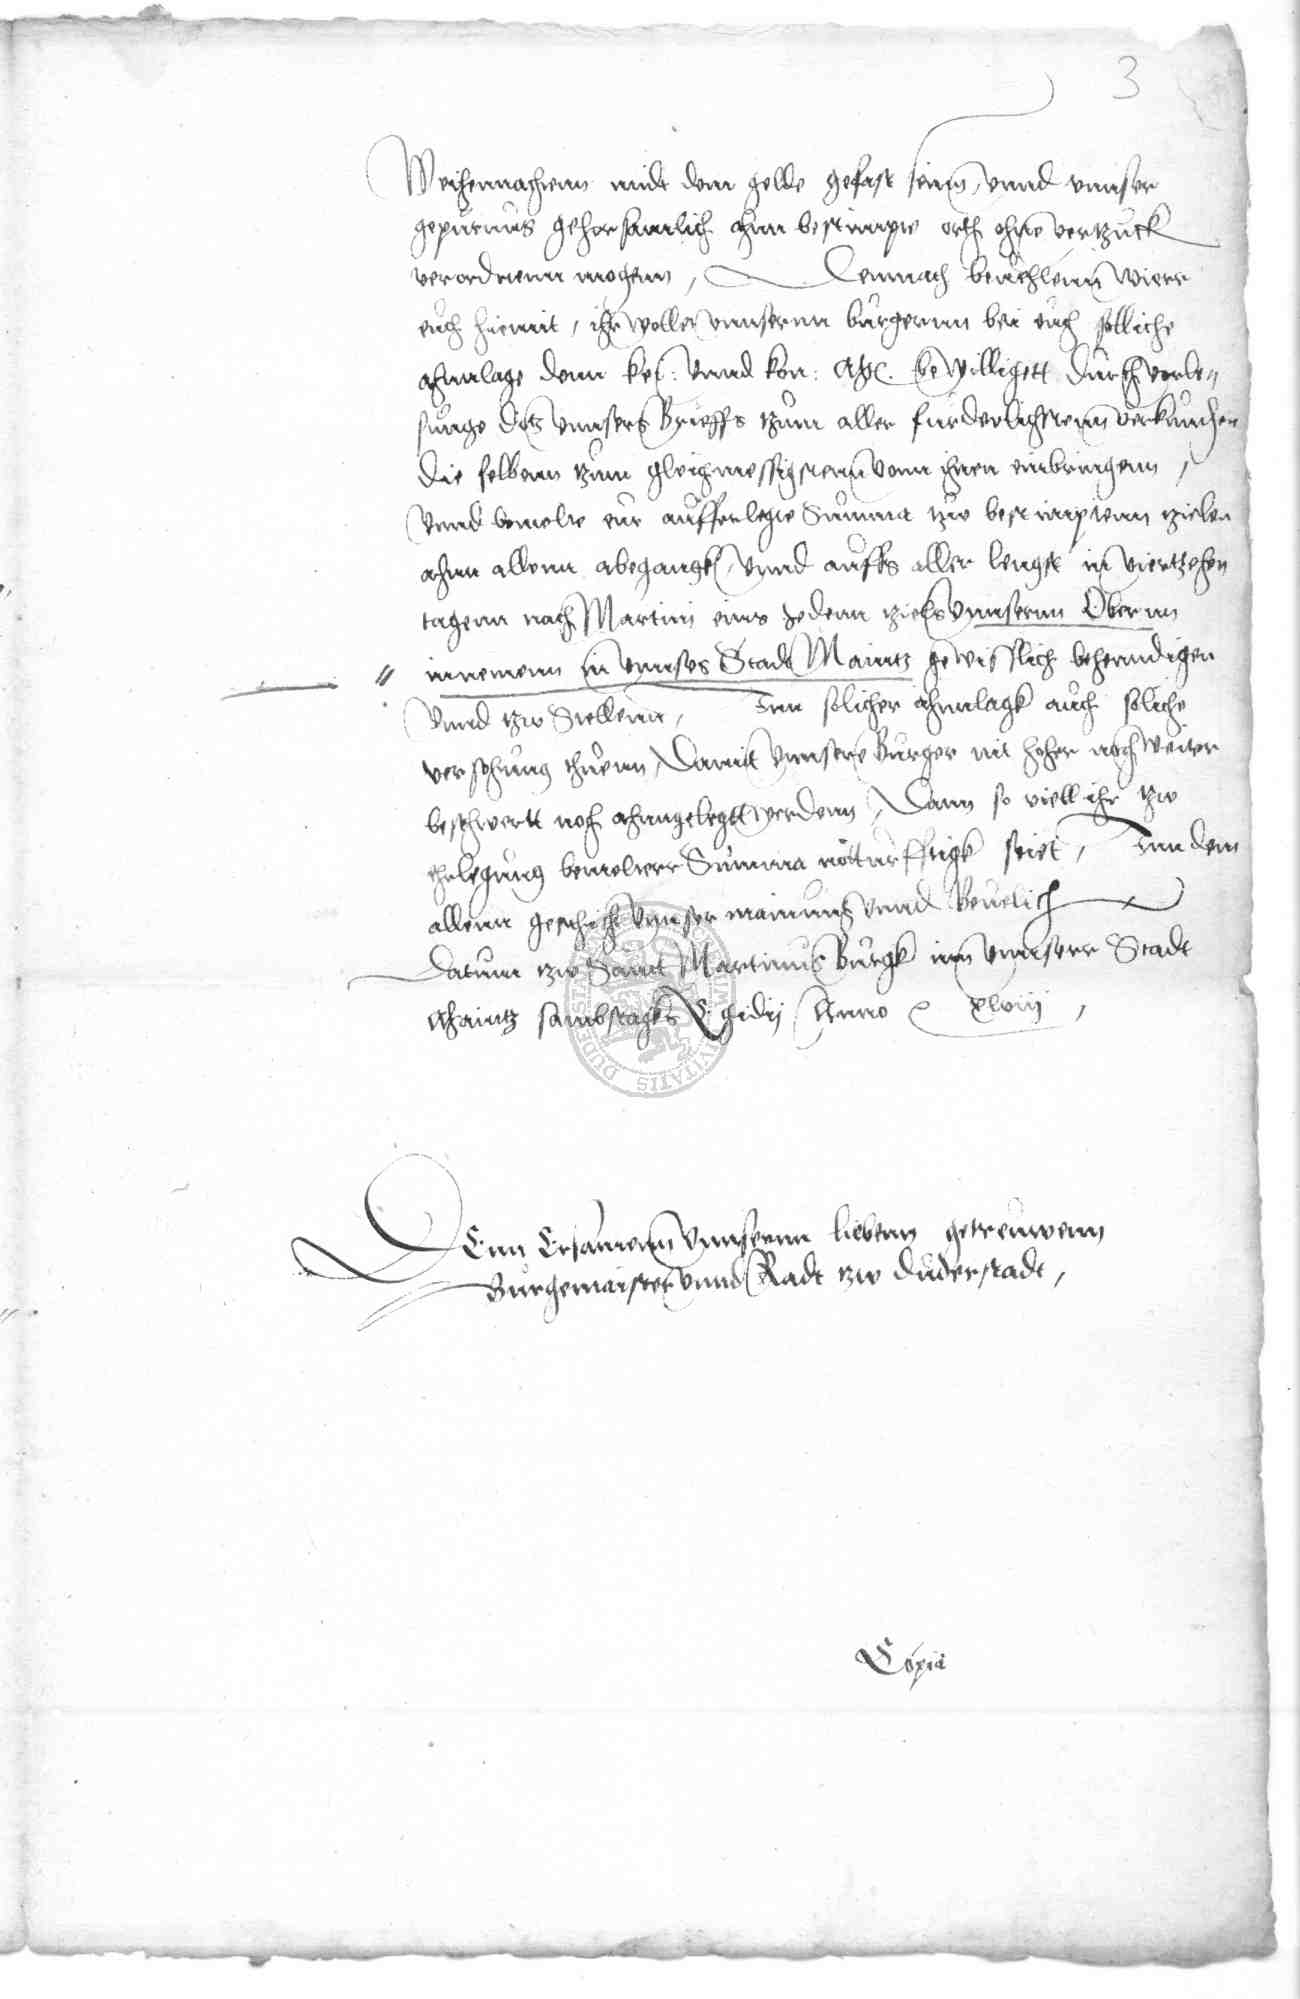 3
Weihennachtenn midt dem gelde gefast seinn, vnnd vnnser
gepurnus gehorsamlich ahnn bestimpte orth ohne vertzuck
verordnenn mogenn, Demnach beuehlenn wierr
euch hiemit, ihr wollet vnnsernn burgernn bei euch solliche
ahnnlage denn key: vnnd kön: Mtt. bewilligett durch verle„
sunge ditz vnnsers Brieffs zum aller furderlichstenn verkunden
die selbenn zum gleichmessigstenn vonn ihnen einbringenn,
vnnd bemelte eur aufferlegte Summa tzw bestimptenn tzielen
ahnn allenn abegangk, vnnd auffs aller lengst in viertzehen
tagenn nach Martini eins Jedenn tziels vnnsernn Obernn
innemern in vnnser Stadt Maintz gewisslich behenndigen
vnnd tzw Stellenn, Inn solicher ahnnlagk auch soliche
versehung thuenn, Damit vnnsere Burger nit hoher noch weiter
beschwertt noch ahnngelegtt werdenn, Dann so viell ihr tzw
erlegung bemelterr Summa notturfftigk seiet, Inn dem
allenn geschicht vnnser mainung vnnd Beuelich
Datum tzw Sanct Martinns Burgk inn vnnserr Stadt
Maintz sambstagks Egidij Anno xlviij,
Denn Ersamenn vnnsernn liebenn getreuwenn
Burgemaister vnnd Radt tzw duderstadt,
Copia